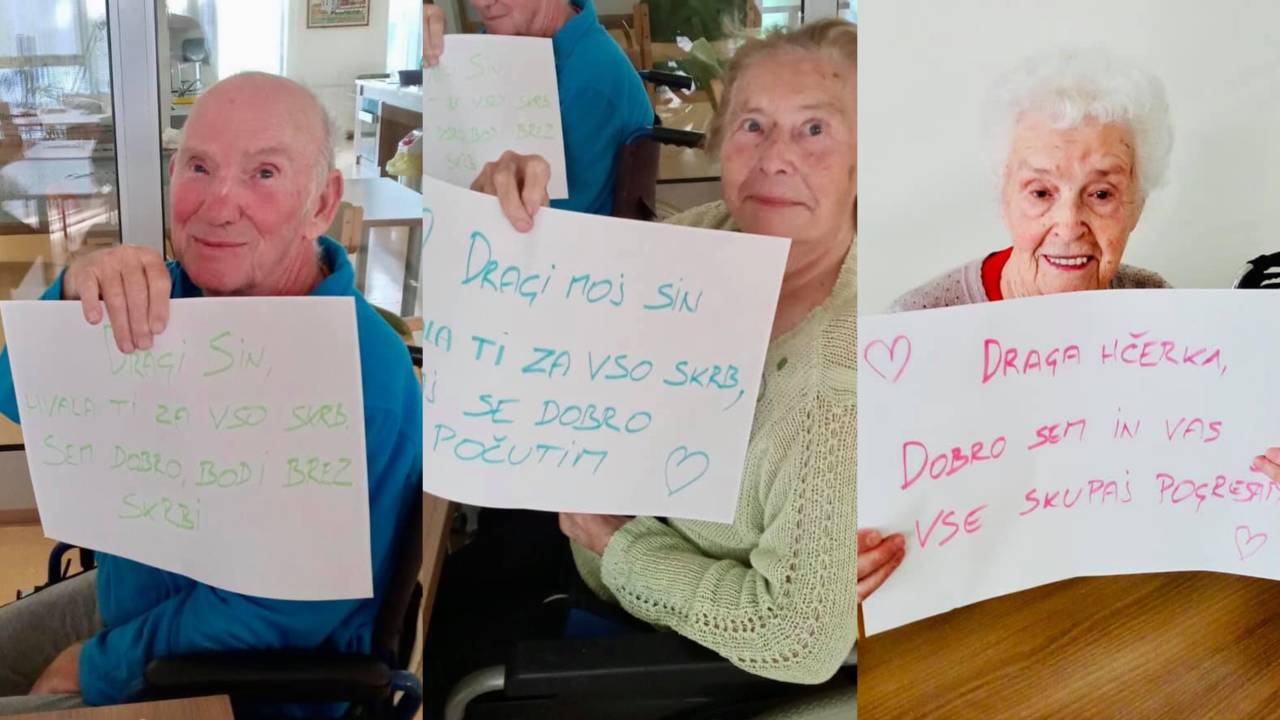 DRAGI SIN,
HVALA TI ZA VSO SKRB.
SEM DOBRO, BODI BREZ
SKRBI
SIN
ZA VSO SKRB
DOBRO, BODI BREZ
SKRBI
DRAGI MOJ SIN
LA TI ZA VSO SKRB,
J SE DOBRO
POČUTIM
DRAGA HČERKA,
DOBRO SEM IN VAS
VSE SKUPAJ POGREŠAM